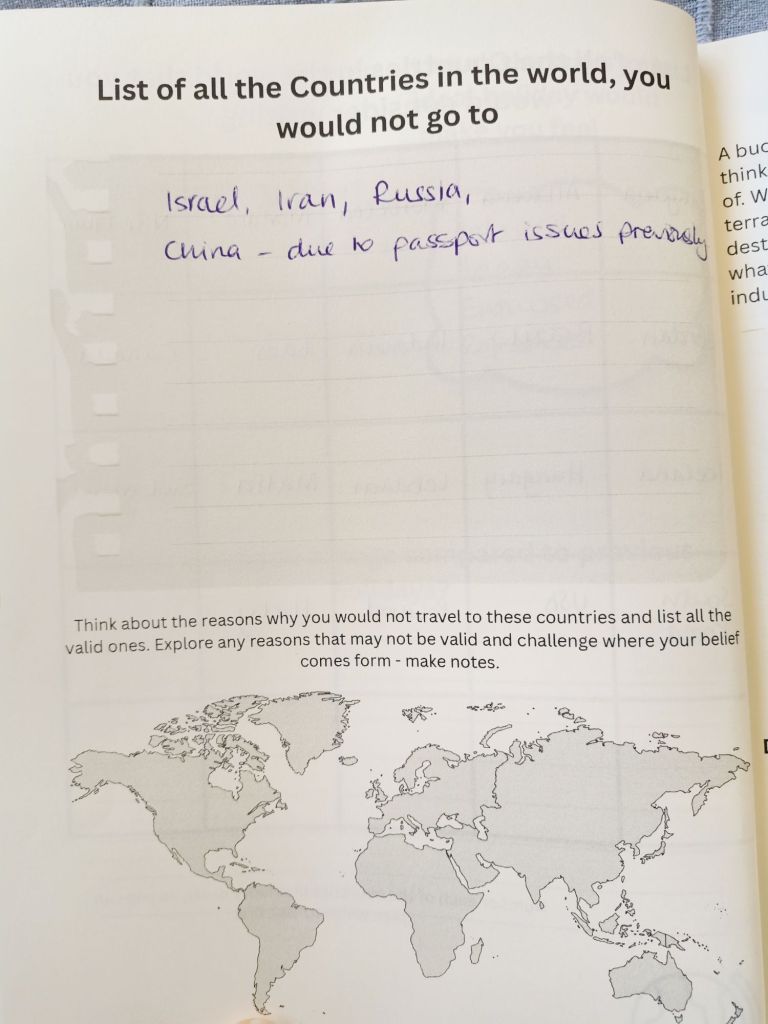 List of all the Countries in the world, you
would not go to
Israel, Iran, Russia,
China - due to passport issues previously
Think about the reasons why you would not travel to these countries and list all the
valid ones. Explore any reasons that may not be valid and challenge where your belief
comes form - make notes.
A buc
think
of. W
terra
dest
wha
indu